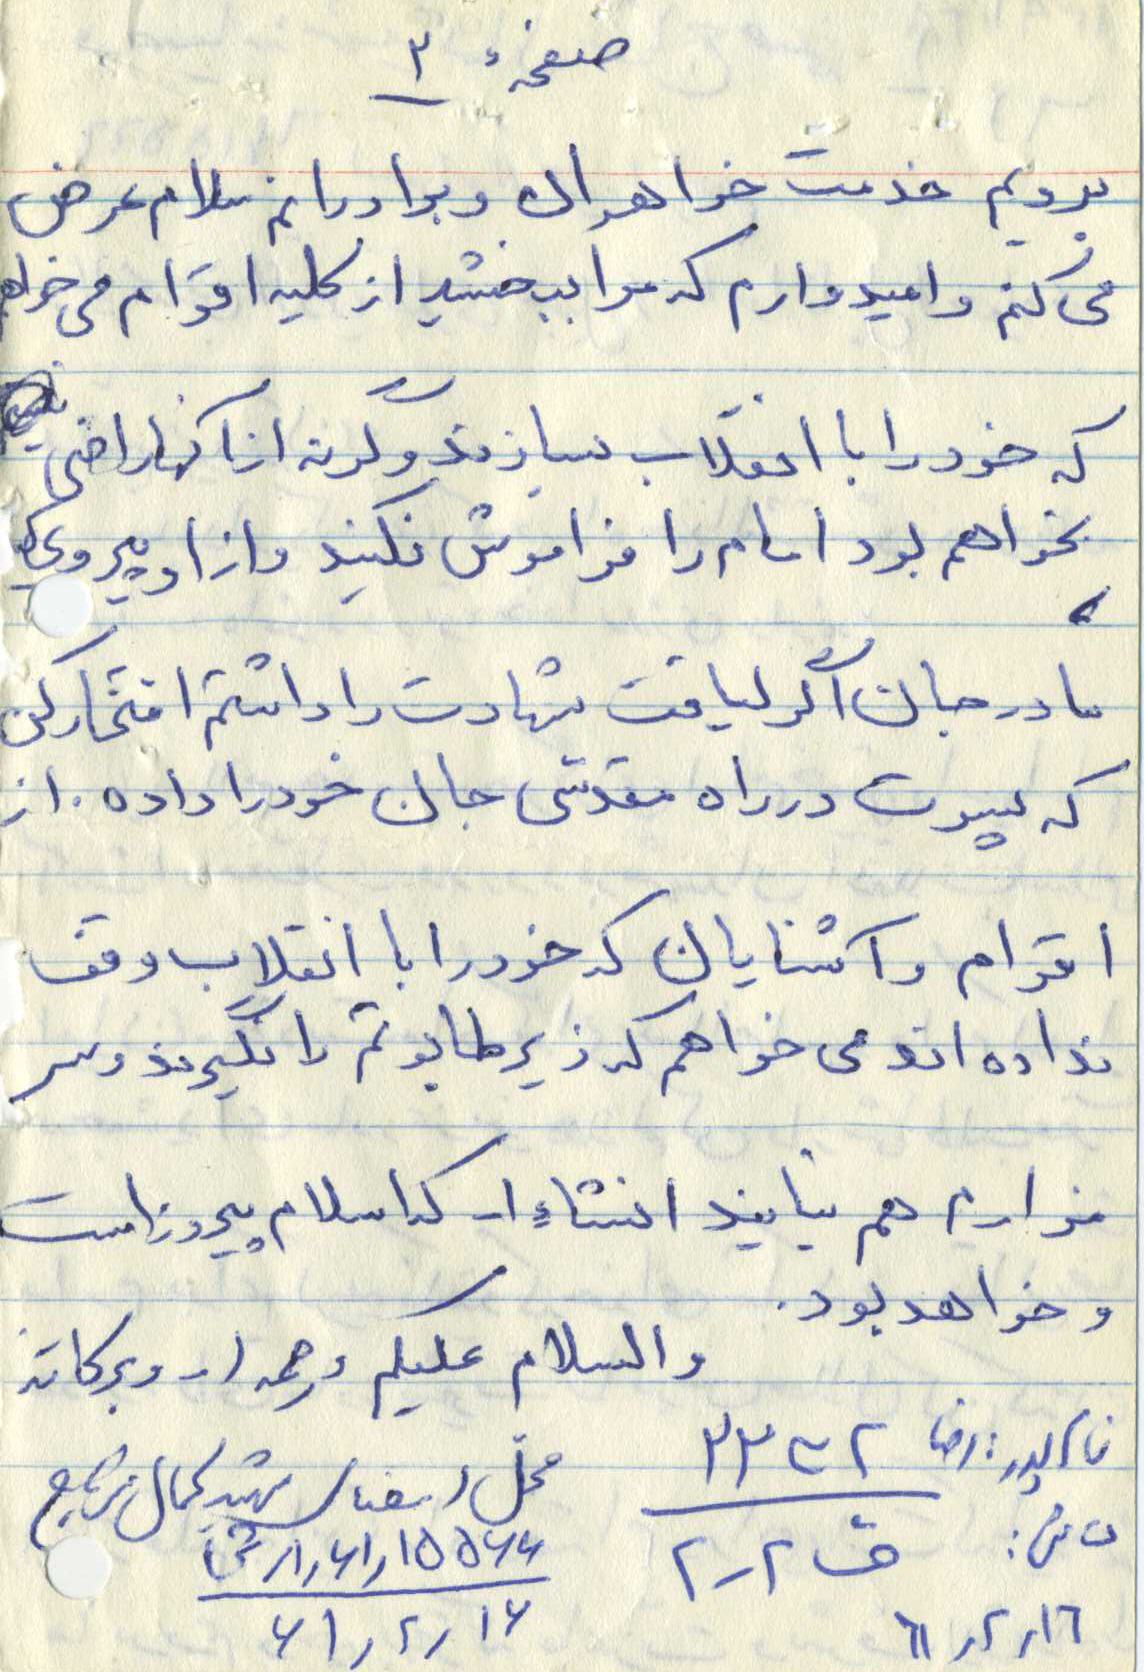 صفحهٔ ۲
برویم خدمت خواهران و برادرانم سلام عرض
می‌کنم و امیدوارم که مرا ببخشید از کلیه اقوام می‌خواهم
که خود را با انقلاب بسازند وگرنه از آنها راضی
نخواهم بود امام را فراموش نکنید و از او پیروی
مادر جان اگر لیاقت شهادت را داشتم افتخار کن
که پسرت در راه مقدسی جان خود را داده . از
اقوام و آشنایان که خود را با انقلاب وقف
نداده‌اند می‌خواهم که زیر طابوتم را نگیرند و سر
مزارم هم نیایند انشاءا.. که اسلام پیروز است
و خواهد بود.
والسلام علیکم و رحمه ا.. و برکاته
نام پدر: رضا
محل / شهید کمال
ش:
ق ۲ر۲
۱۶ر۲ر۶۱
۱۶ر۲ر۶۱